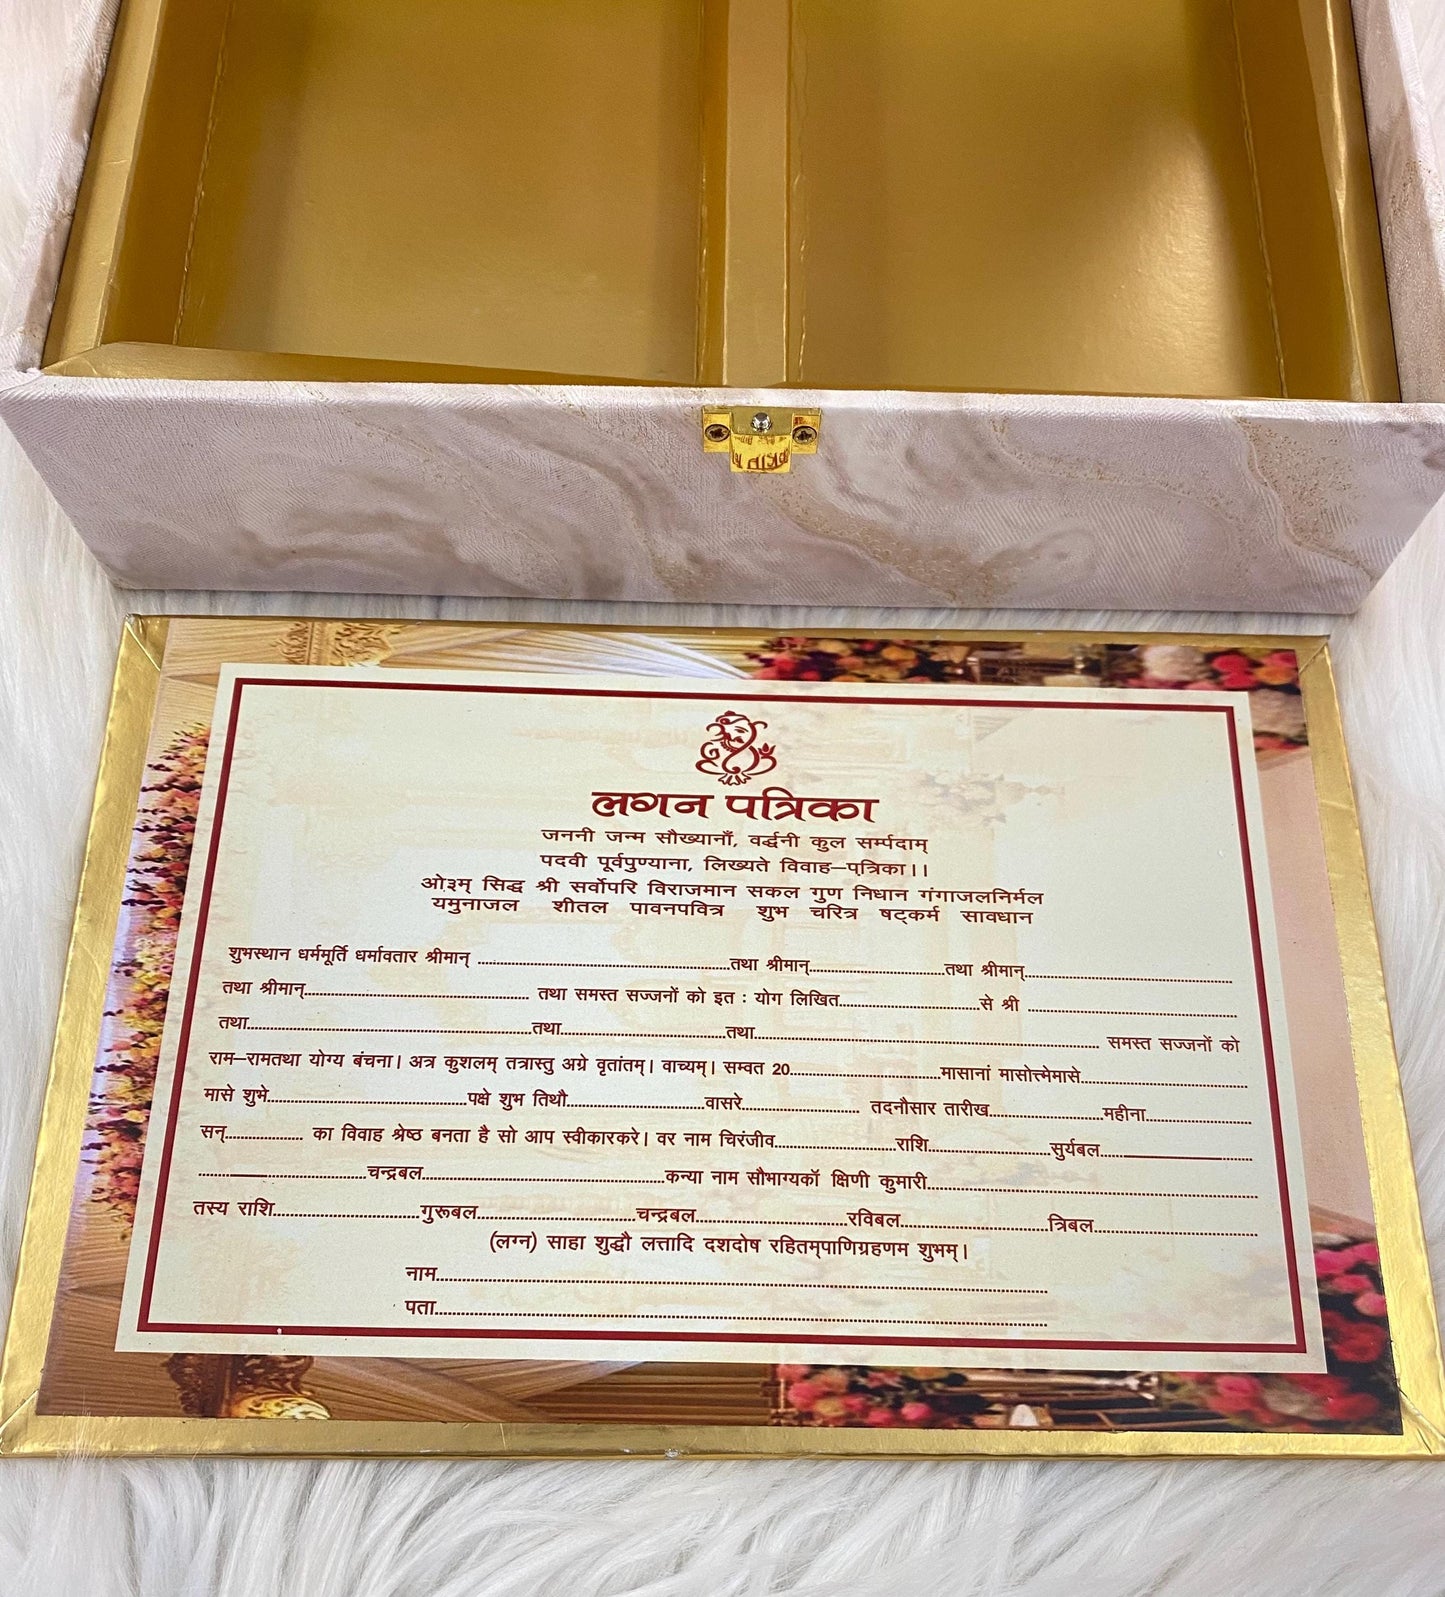 लगन पत्रिका
जननी जन्म सौख्यानाँ, वर्द्धनी कुल सर्म्पदाम्
पदवी पूर्वपुण्याना, लिख्यते विवाह–पत्रिका।।
ओ३म् सिद्ध श्री सर्वोपरि विराजमान सकल गुण निधान गंगाजलनिर्मल
यमुनाजल शीतल पावनपवित्र शुभ चरित्र षट्कर्म सावधान
शुभस्थान धर्ममूर्ति धर्मावतार श्रीमान् ........ तथा श्रीमान् ........ तथा श्रीमान् ........
तथा श्रीमान् ........ तथा समस्त सज्जनों को इत : योग लिखित ........ से श्री ........
तथा ........ तथा ........ तथा ........ समस्त सज्जनों को
राम–रामतथा योग्य बंचना। अत्र कुशलम् तत्रास्तु अग्रे वृतांतम्। वाच्यम्। सम्वत 20 ........ मासानां मासोत्त्मेमासे ........
मासे शुभे ........ पक्षे शुभ तिथौ ........ वासरे ........ तदनौसार तारीख ........ महीना ........
सन् ........ का विवाह श्रेष्ठ बनता है सो आप स्वीकारकरे। वर नाम चिरंजीव ........ राशि ........ सुर्यबल ........
........ चन्द्रबल ........ कन्या नाम सौभाग्यकॉ क्षिणी कुमारी ........
तस्य राशि ........ गुरूबल ........ चन्द्रबल ........ रविबल ........ त्रिबल ........
(लग्न) साहा शुद्धौ लत्तादि दशदोष रहितम्पाणिग्रहणम शुभम्।
नाम ........
पता ........